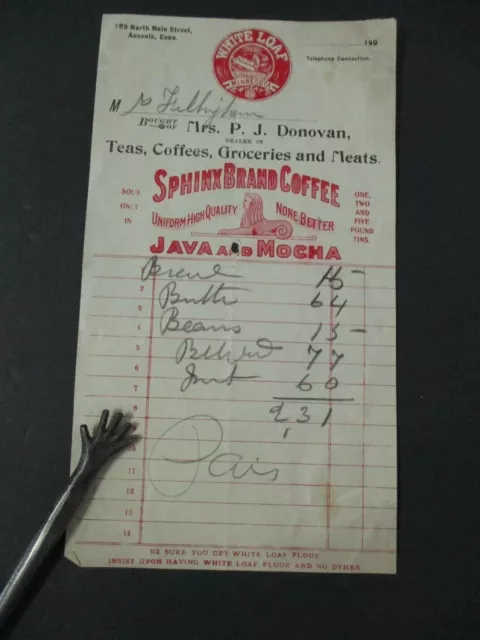 189 North Main Street,
Ansonia, Conn.
199
Telephone Connection.
WHITE LOAF
MINNESOTA
M rs
Bought of Mrs. P. J. Donovan,
DEALER IN
Teas, Coffees, Groceries and Meats.
SPHINX BRAND COFFEE
SOLD ONLY IN
UNIFORM HIGH QUALITY NONE BETTER
ONE, TWO AND FIVE POUND TINS.
JAVA AND MOCHA
Bread 15
2 Butter 64
4 Beans 15
5 77
7 60
8 231
10 Paid
11
12
13
14
BE SURE YOU GET WHITE LOAF FLOUR
INSIST UPON HAVING WHITE LOAF FLOUR AND NO OTHER